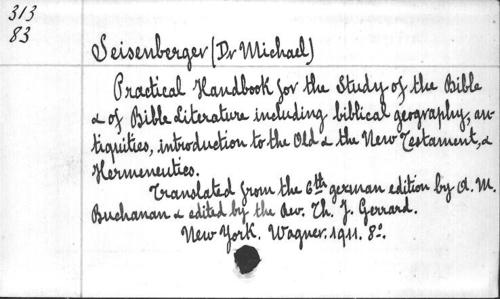 313
83
Seisenberger (Dr Michael)
Practical Handbook for the Study of the Bible
& of Bible Literature including biblical geography, an-
tiquities, introduction to the Old & the New Testament, &
Hermeneutics.
Translated from the 6th german edition by A. M.
Buchanan & edited by the Rev. Th. J. Gerrard.
New York. Wagner. 1911. 8o.